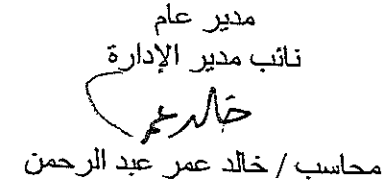 مدير عام
نائب مدير الإدارة
خالد عمر
محاسب / خالد عمر عبد الرحمن